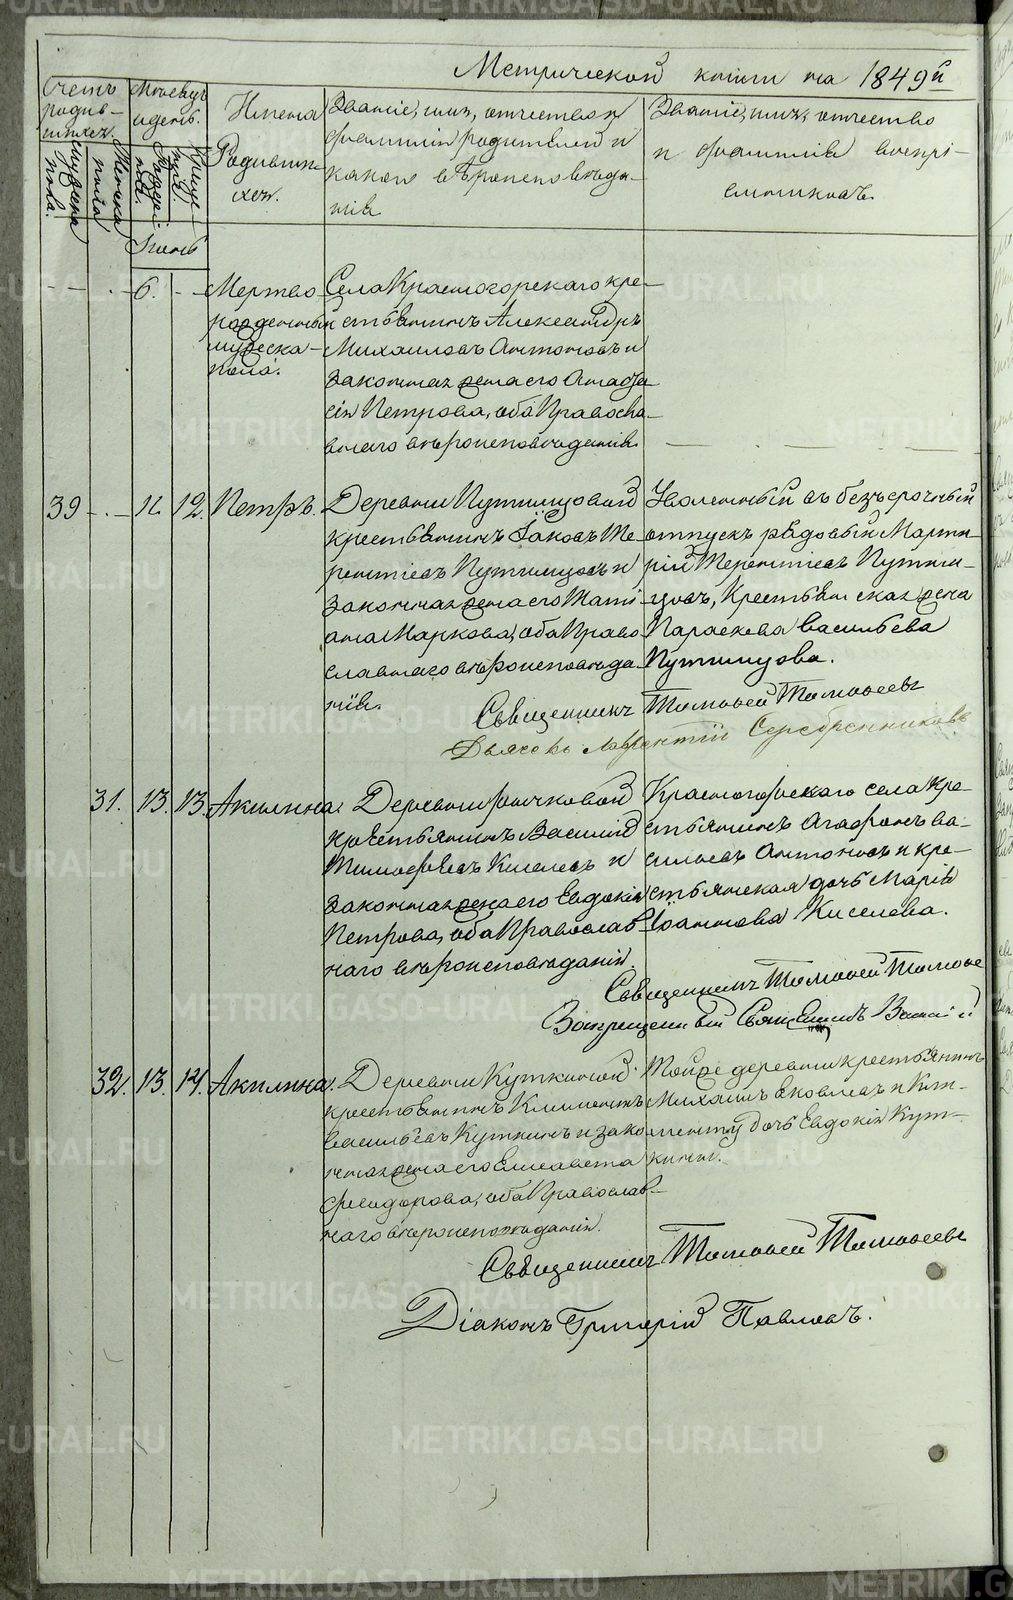 Метрической книги на 1849й
Счетъ родив-шихся.
Мужеска пола.
Женска пола
Месяцъ и день.
Рожде-нія.
Креще-нія.
Имена Родивших-ся.
Званіе, имя, отчество и фамилія родителей и какого вѣроисповѣда-нія
Званіе, имя, отчество и фамилія воспрі-емниковъ.
Іюнь
6. Мертво-рожденный мужеска-пола.
Села Красногорскаго кре-
стьянинъ Александръ
Михаиловъ Антоновъ и
законная жена его Анаста-
сія Петрова, оба Правосла-
внаго вѣроисповѣданія.
39 11. 12. Петръ.
Деревни Путимцовой
крестьянинъ Іаковъ Те-
рентіевъ Путимцовъ и
законная жена его Тати-
ана Маркова, оба Право
славнаго вѣроисповѣда
нія.
Уволенный въ безсрочный
отпускъ рядовый Марти-
рій Терентіевъ Путим-
цовъ, Крестьянская жена
Параскева Васильева
Путимцова.
Священникъ Тимофей Тимофеевъ
Дьячекъ Лаврентій Серебренниковъ
31. 13. 13. Акилина.
Деревни
крестьянинъ Василій
Тимофеевъ Киселевъ и
законная жена его Евдокія
Петрова, оба Православ
наго вѣроисповѣданія.
Красногорскаго села кре-
стьянинъ Агафонъ Ва-
сильевъ Антоновъ и кре-
стьянская дочь Марія
Іоаннова Киселева.
Священникъ Тимофей Тимофе
Запрещенный Священникъ
32. 13. 14. Акилина.
Деревни Куткиной
крестьянинъ Климентъ
Васильевъ Куткинъ и зако
нная жена его Елисавета
Феодорова, оба Православ-
наго вѣроисповѣданія.
Той же деревни крестьянинъ
Михаилъ Яковлевъ и Кли-
менту дочь Евдокія Кут-
кины.
Священникъ Тимофей Тимофеевъ
Діаконъ Григорій Павловъ.
METRIKI.GASO-URAL.RU